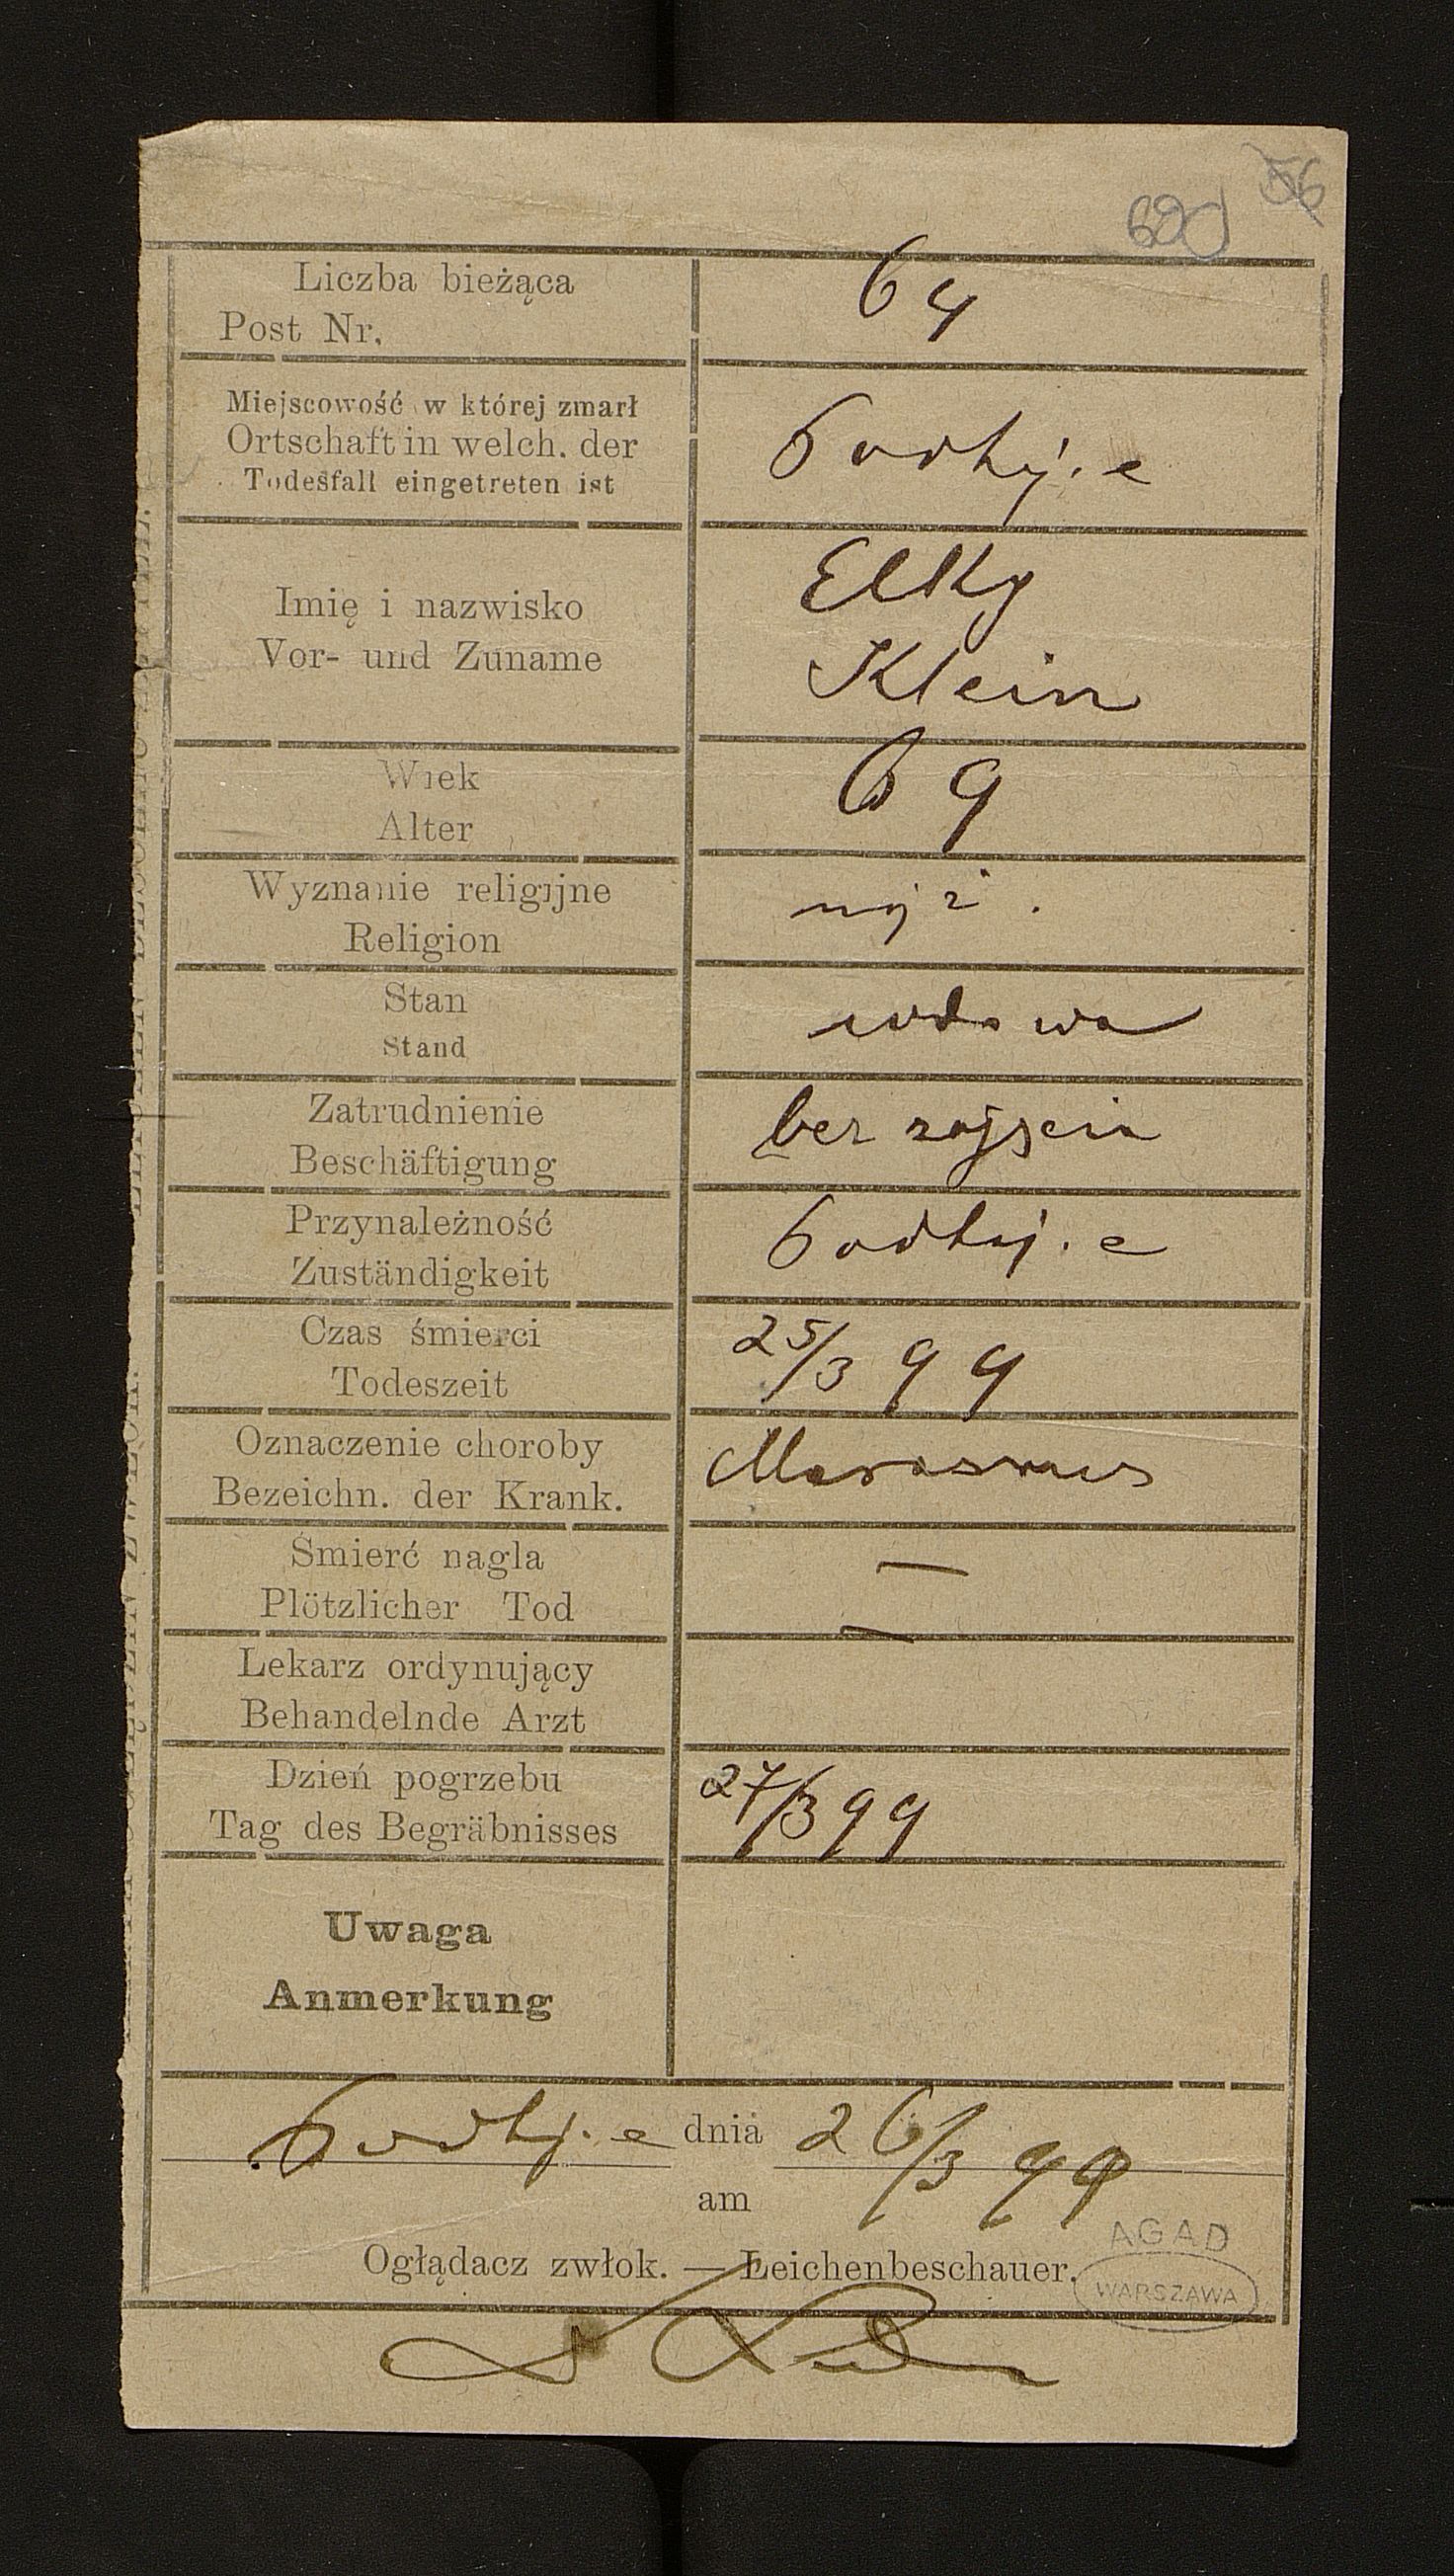 56
62d
Liczba bieżąca
Post Nr.
64
Miejscowość w której zmarł
Ortschaft in welch. der
Todesfall eingetreten ist
Podhaj.e
Imię i nazwisko
Vor- und Zuname
Elky
Klein
Wiek
Alter
69
Wyznanie religijne
Religion
mojż.
Stan
Stand
wdowa
Zatrudnienie
Beschäftigung
bez zajęcia
Przynależność
Zuständigkeit
Podhaj.e
Czas śmierci
Todeszeit
25/3 99
Oznaczenie choroby
Bezeichn. der Krank.
Marasmus
Śmierć nagla
Plötzlicher Tod
—
Lekarz ordynujący
Behandelnde Arzt
—
Dzień pogrzebu
Tag des Begräbnisses
27/3 99
Uwaga
Anmerkung
Podhaj.e dnia 26/3 99
am
Oglądacz zwłok. — Leichenbeschauer.
AGAD
WARSZAWA